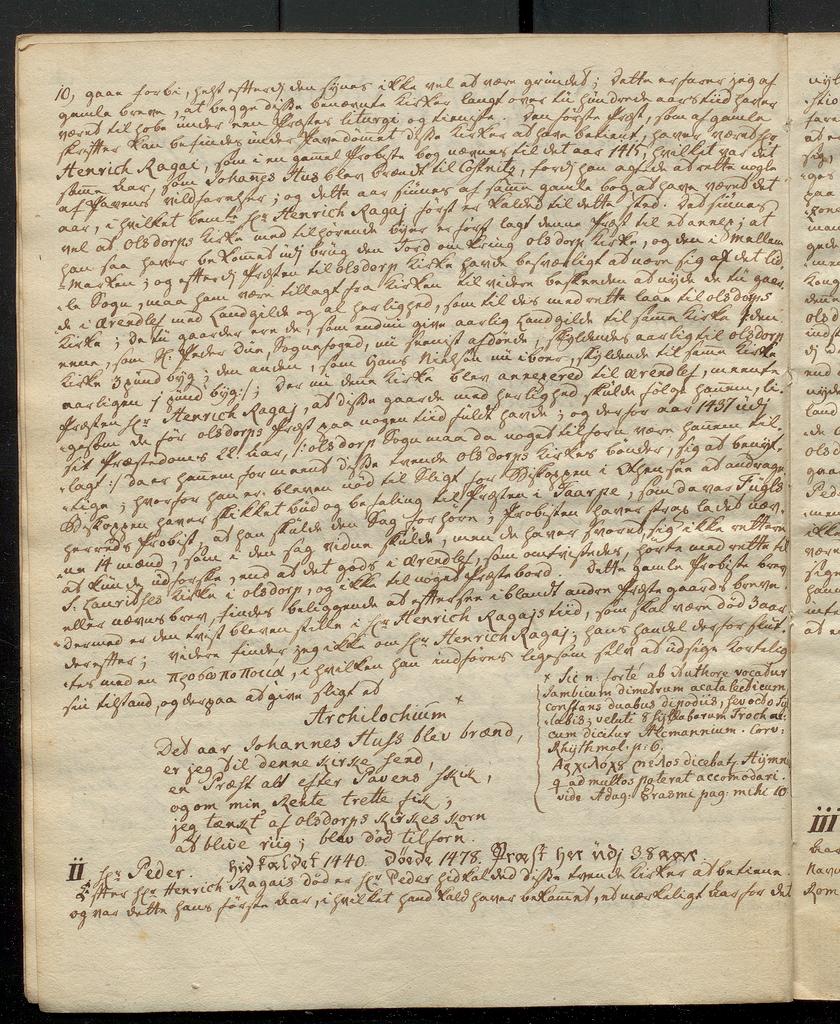 10, gaae forbi, helst efterdj den synes ikke vel at være grundet; Dette erfarer jeg af
gamle breve, at begge disse benævnte Kirker langt over tü hundrede aars tiid haver
været tilhobe ünder een Præstes liturgi og tieneste. Den förste Præst, som af gamle
skrifter kan befindes ünder Pavedömmet disse Kirker at have betient, haver været Hr
Henrich Ragai, som i en gamel Probste bog nævnes til det aar 1415, hvilket var det
samme Aar, som Johannes Hus blev brændt til Costnitz, fordj han agtede at rette nogle
af Pavens vildfarelser; og dette aar findes af samme gamle bog at have været det
aar, i hvilket bemte Hr Henrich Ragaj först er kaldet til dette sted. Det siünes
vel at Olsdorps Kirke med tilhörende byer er först lagt denne Præst til et annex; at
han saa haver bekommet udj brüg den Jord omkring Olsdorp Kirke, og den i Mellem
Marken; og efterdj Præsten til Olsdorp Kirke havde besværligt at nære sig af det lid-
le Sogn, maa ham være tillagt fra Kirken til videre beskeeden at nyde de tü gaar-
de i Ærendlef med Landgilde og al herlighed, som til des med rette laae til Olsdorps
Kirke; De tü gaarder ere de, som endnu give aarlig Landgilde til samme Kirke /: den
eene, som Sl. Peder Due, Sognefoged, nu seenist afdöde, skyldendes aarlig til Olsdorp
Kirke 3 pund byg; den anden, som Hans Nielsön nü iboer, skyldende til samme Kirke
aarligen 1 pund byg :/; Der nu denne Kirke blev annexered til Ærendlef, meente
Præsten Hr Henrich Ragaj, at disse gaarde med herlighed skulde fölge hannem, li-
gesom de för Olsdorps Præst paa nogen tiid fuldt havde; og derfor aar 1437 udj
sit Præstedoms 22 Aar, /: Olsdorp Sogn maa da noget tilforn være hannem til-
lagt :/ da er hannem formeent disse tvende Olsdorps Kirkes bönder, sig at benyt-
tige; hvorfor han er bleven nöd til sligt for Biskoppen i Othensee at andrage.
Biskoppen haver skikket bud og befaling til Præsten i Taarpe, som da var Fugls
herreds Probist, at han skulde den Sag forhöre; Probsten haver strax ladet næv-
ne 14 mænd, som i den sag vidne skulde, men de haver svoret, sig ikke rettere
at kunde udforske, end at det gods i Ærendlef, som omtvistedes, hörte med rette til
S. Lauritses Kirke i Olsdorp, og ikke til noget Præstebord. Dette gamle Probste brev
eller nævns brev, findes beliggende at eftersee iblandt andre Præstegaards breve.
Dermed er den tvist bleven stille i Hr Henrich Ragajs tiid, som skal være död 3 aar
derefter; videre finder jeg ikke om Hr Henrich Ragaj; hans handel derfor slut-
tes med en προσωποποιία, i hvilken han indföres ligesom selv at udsige kortelig
sin tilstand, og derpaa at give sligt et
Archilochium ×
Det aar Johannes Huss blev brænd,
er jeg til denne Kirke send,
en Præst alt efter Pavens skik,
og om min Rente trette fik;
jeg tænkt' af Olsdorps Kirkes Korn
at blive riig; blev död tilforn.
× Sic n. forté ab Authore vocatur
Jambicum dimetrum acatalecticum
constans duabus dipodiis, sev octo Syl-
labis; veluti 8 syllabarum Trochai-
cum dicitur Alcmannium. Corv:
Rhythmol. p. 6.
Αρχιλόχȣ μελος dicebatr Hymn
q ad multos poterat accomodari.
vide Adag: Erasmi pag: mihi 10
II Hr Peder. hid kaldet 1440. Döde 1478. Præst her udj 38 aar.
Efter Hr Henrich Ragais död er Hr Peder hidkaldet disse tvende Kirker at betiene.
og var dette hans förste Aar, i hvilket hand kald haver bekommet, et mærkeligt Aar for det
III